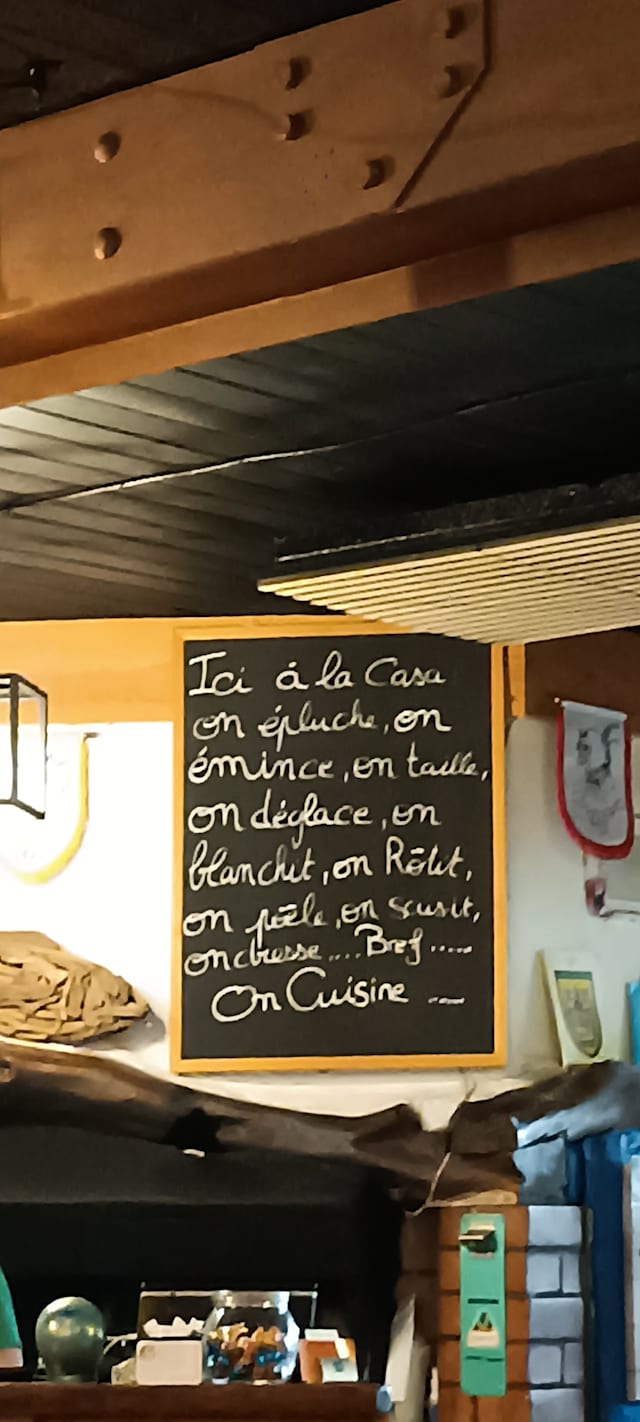 Ici à la Casa
on épluche, on
émince, on taille,
on déglace, on
blanchit, on Rôtit,
on poêle, on
on dresse .... Bref .....
On Cuisine ....